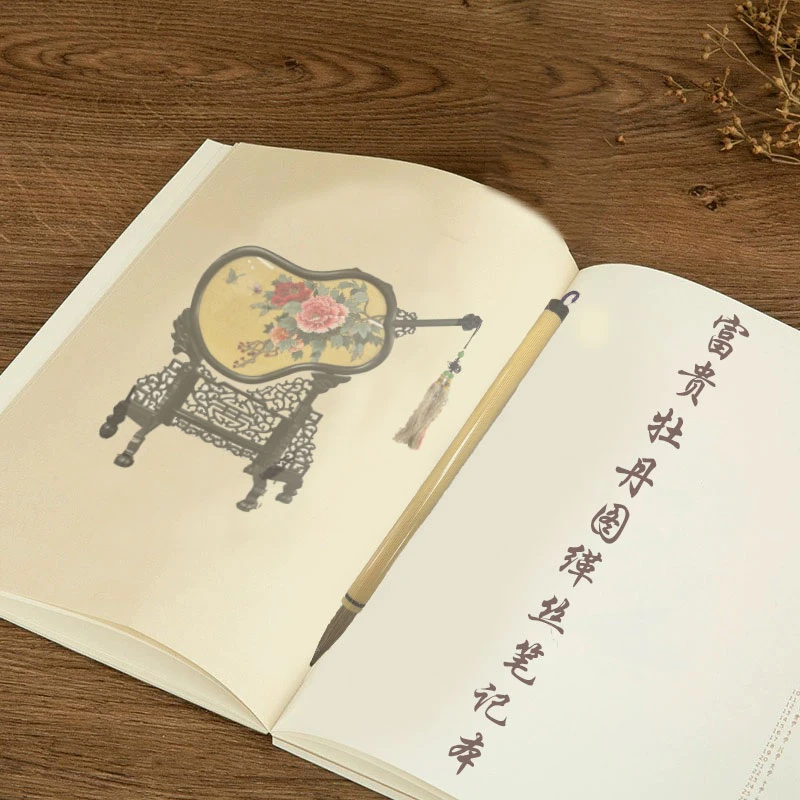 富贵牡丹图缂丝笔记本